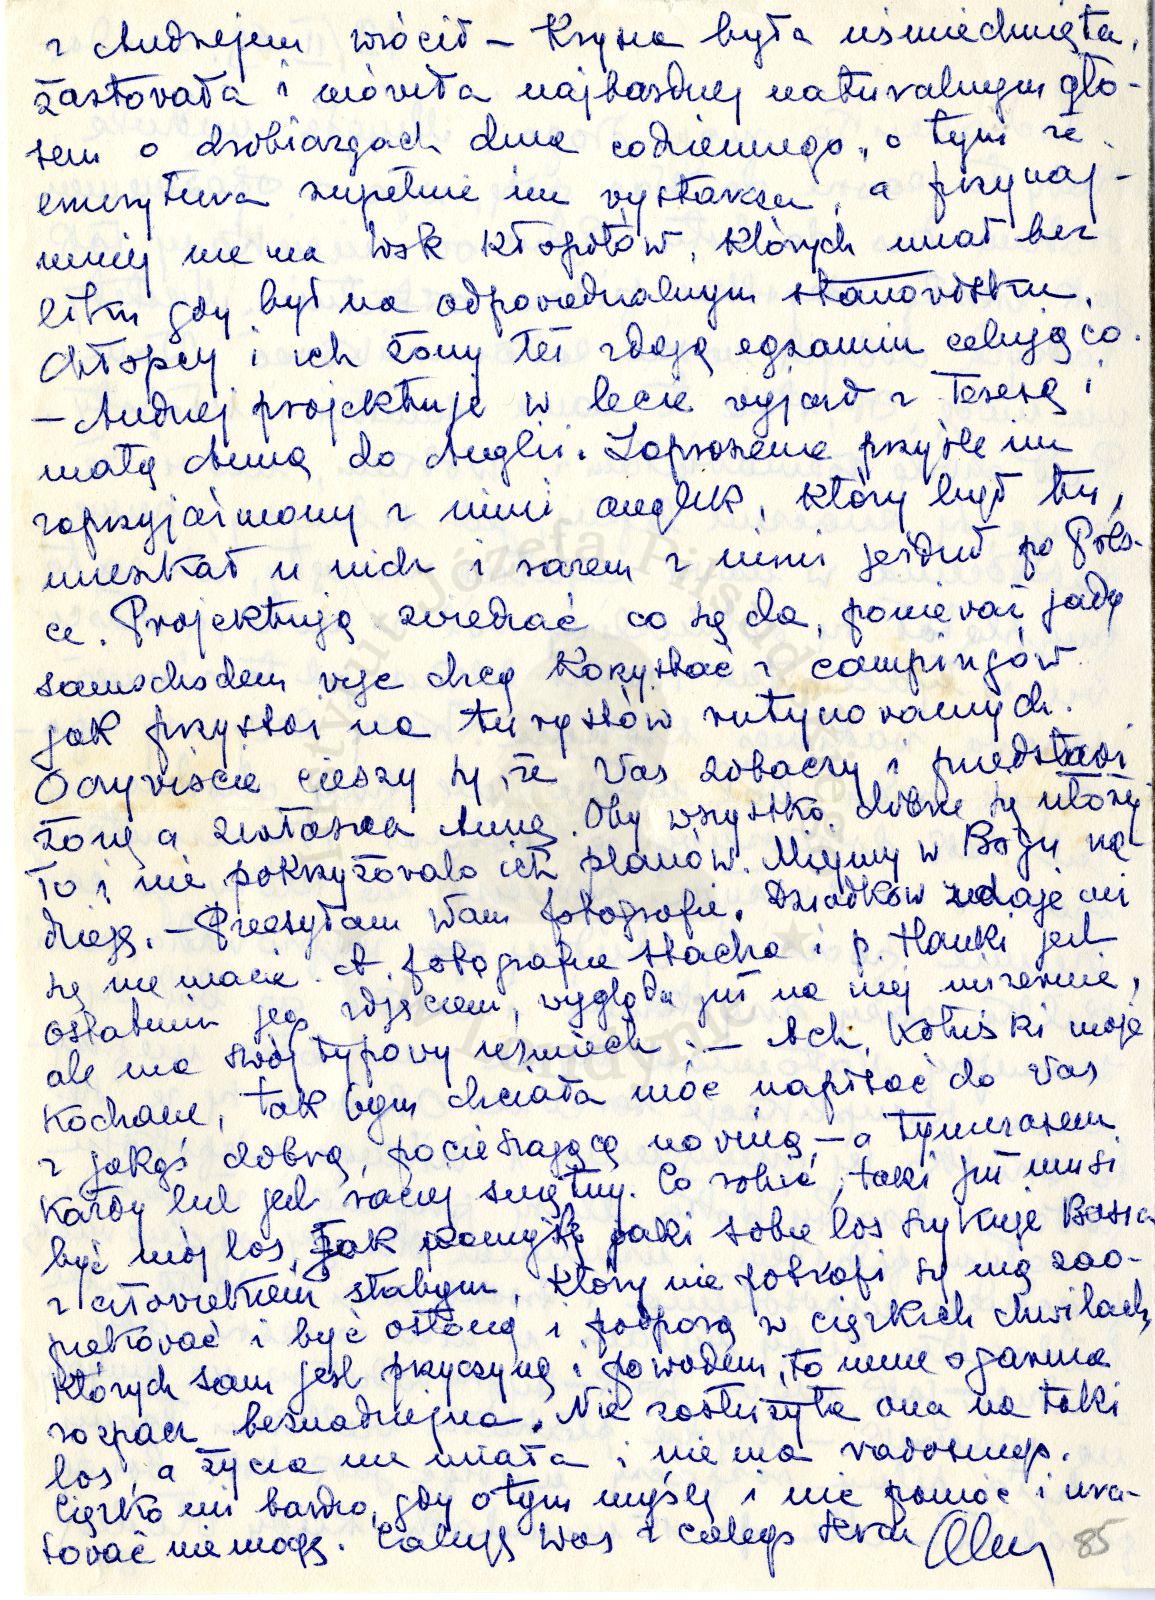 z Andrzejem wrócił – Krysia była uśmiechnięta,
żartowała i mówiła najbardziej naturalnym gło-
sem o drobiazgach dnia codziennego, o tym że
emerytura zupełnie im wystarcza, a przynaj-
mniej nie ma Wsk kłopotów, których miał bez
liku gdy był na odpowiedzialnym stanowisku.
Chłopcy i ich żony też zdają egzamin celująco.
– Andrzej projektuje w lecie wyjazd z Teresą i
małą Anną do Anglii. Zaproszenie przyśle im
zaprzyjaźniony z nimi anglik, który był tu,
mieszkał u nich i razem z nimi jeździł po Pols-
ce. Projektują zwiedzać co się da, ponieważ jadą
samochodem więc chcą korzystać z campingów
jak przystoi na turystów rutynowanych.
Oczywiście cieszy się, że Was zobaczy i przedstawi
żonę a zwłaszcza Annę. Oby wszystko dobrze się ułoży
ło i nie pokrzyżowało ich planów. Miejmy w Bogu na
dzieję. – Przesyłam Wam fotografie. Dziadków zdaje mi
się nie macie. A fotografia Stacha i p. Hanki jest
ostatnim jego zdjęciem, wygląda już na niej mizernie,
ale ma swój typowy uśmiech. – Ach, Kotuśki moje
kochane, tak bym chciała móc napisać do Was
z jakąś dobrą, pocieszającą nowiną, – a tymczasem
każdy list jest raczej smętny. Co robić, taki już musi
być mój los. Jak pomyślę jaki sobie los szykuje Basia
z człowiekiem słabym, który nie potrafi się nią zao-
piekować i być osłoną i podporą w ciężkich chwilach,
których sam jest przyczyną i powodem, to mnie ogarnia
rozpacz beznadziejna. Nie zasłużyła ona na taki
los, a życia nie miała i nie ma radosnego.
Ciężko mi bardzo, gdy o tym myślę i nic pomóc i ura-
tować nie mogę. Całuję Was z całego serca
85
Instytut Józefa Piłsudskiego
w Londynie